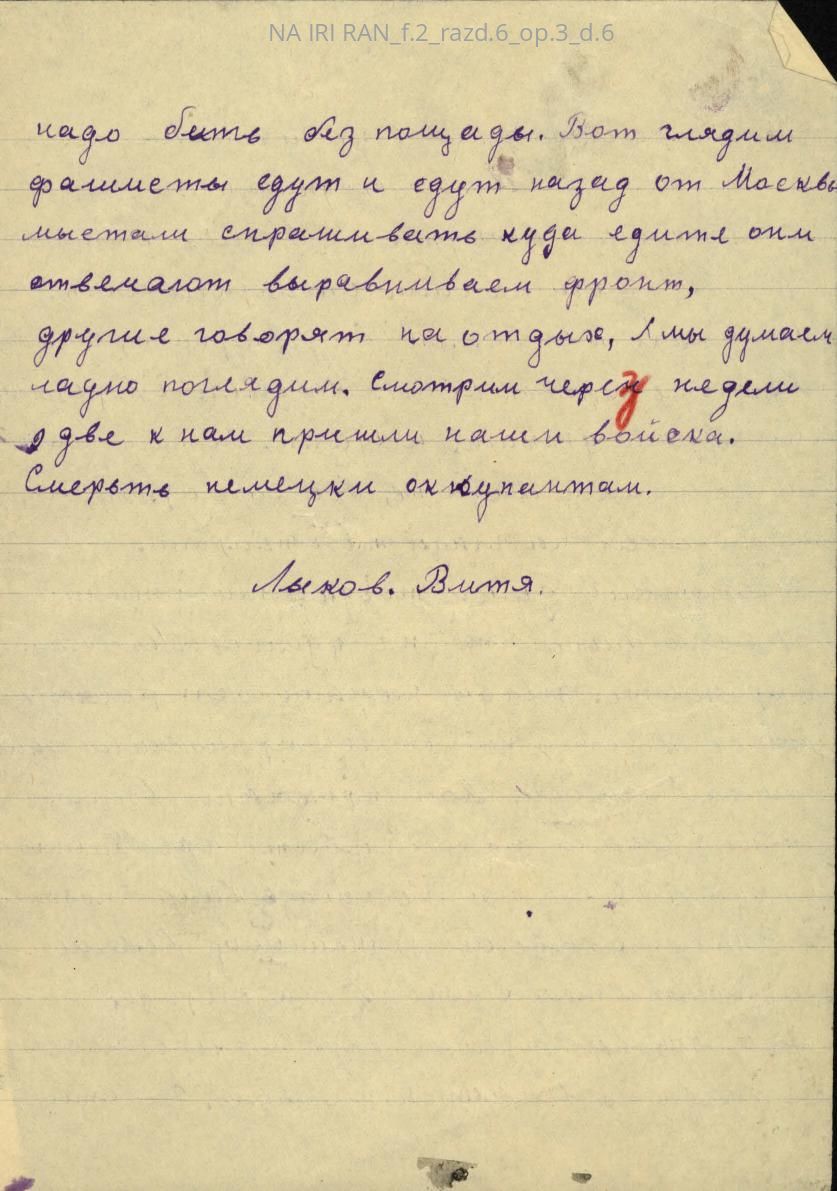 NA IRI RAN_f.2_razd.6_op.3_d.6
надо бить без пощады. Вот глядим
фашисты едут и едут назад от Москвы
мыстали спрашивать куда едите они
отвечают выравниваем фронт,
другие говорят на отдых, А мы думаем
ладно поглядим. Смотрим через недели
две к нам пришли наши войска.
Смерьть немецки оккупантам.
Лыков. Витя.